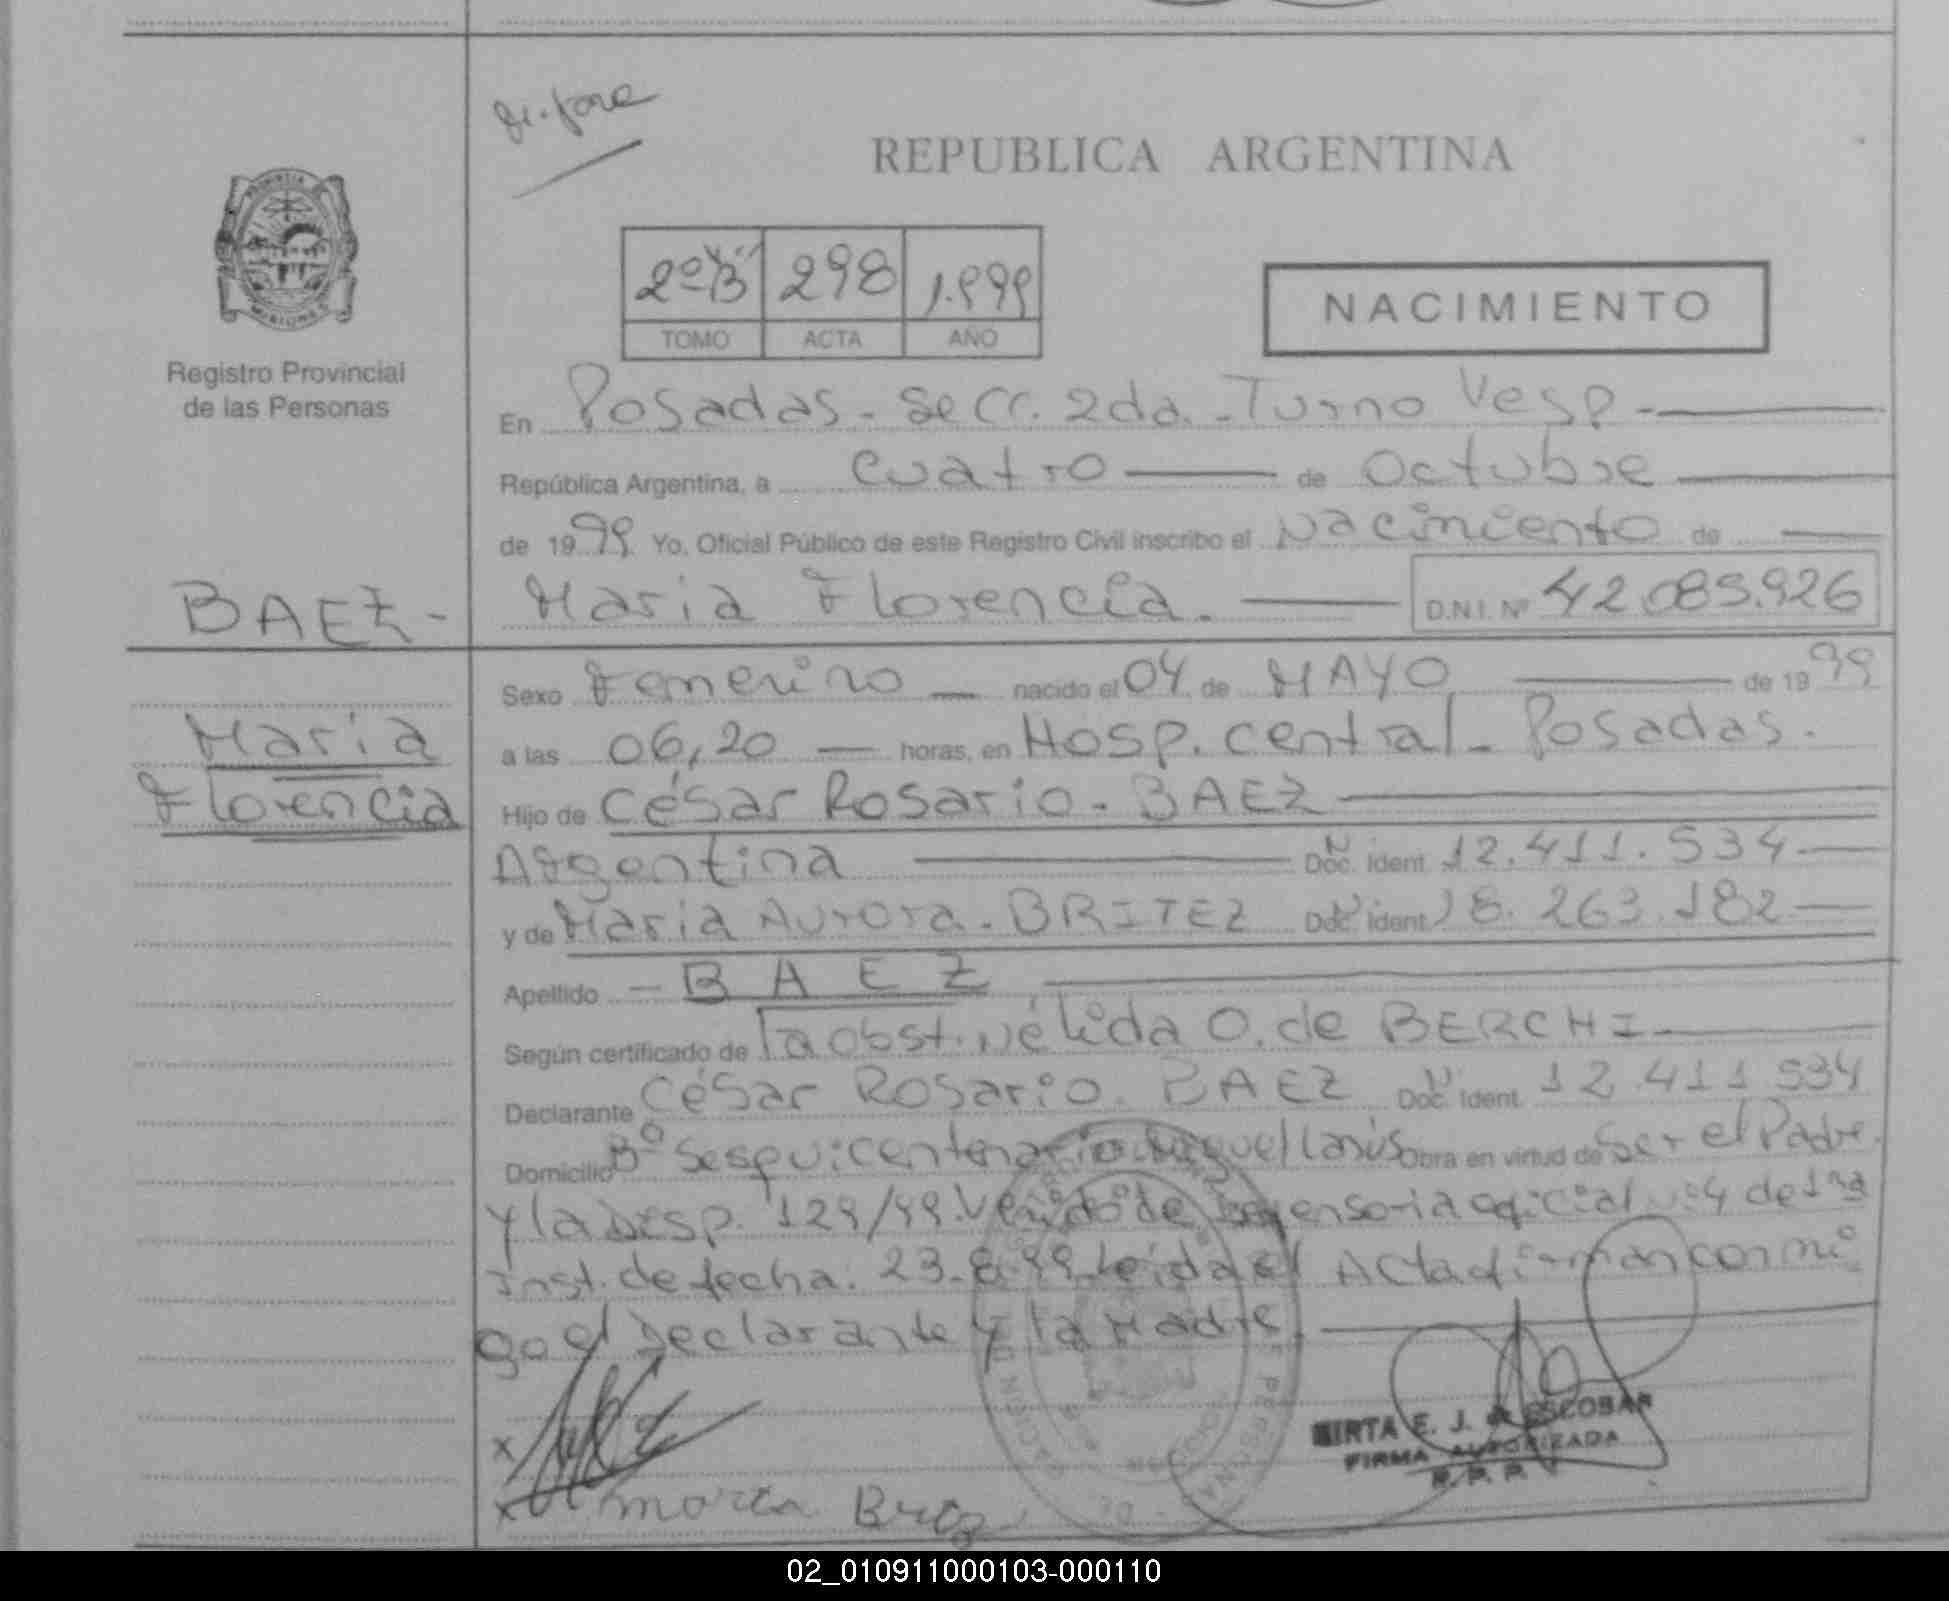 REPUBLICA ARGENTINA
2º "B" 298 1.999
TOMO ACTA AÑO
NACIMIENTO
Registro Provincial
de las Personas
En Posadas - Secr. 2da. - Turno Vesp -
República Argentina, a Cuatro de Octubre
de 1999 Yo, Oficial Público de este Registro Civil inscribo el Nacimiento de
BAEZ -
Maria Florencia. D.N.I. Nº 42.085.926
Maria
Florencia
Sexo Femenino nacido el 04 de MAYO de 1999
a las 06,20 horas, en Hosp. central - Posadas.
Hijo de César Rosario - BAEZ
Argentina Doc. Ident. 12.411.534
y de Maria Aurora - BRITEZ Doc. Ident. 18.263.182
Apellido - BAEZ
Según certificado de la obst. Nélida O. de BERCHI
Declarante César Rosario. BAEZ Doc. Ident. 12.411.534
Domicilio Bº Sesquicentenario Miguel Lanus Obra en virtud de Ser el Padre
y la Disp. 129/99. Venido de Defensoria oficial Nº 4 de 1ra
Inst. de fecha. 23.8.99 Leida el Acta firman conmi
go el Declarante y la Madre.
x
x
MIRTA E. J. de ESCOBAR
FIRMA AUTORIZADA
R. P. P.
02_010911000103-000110